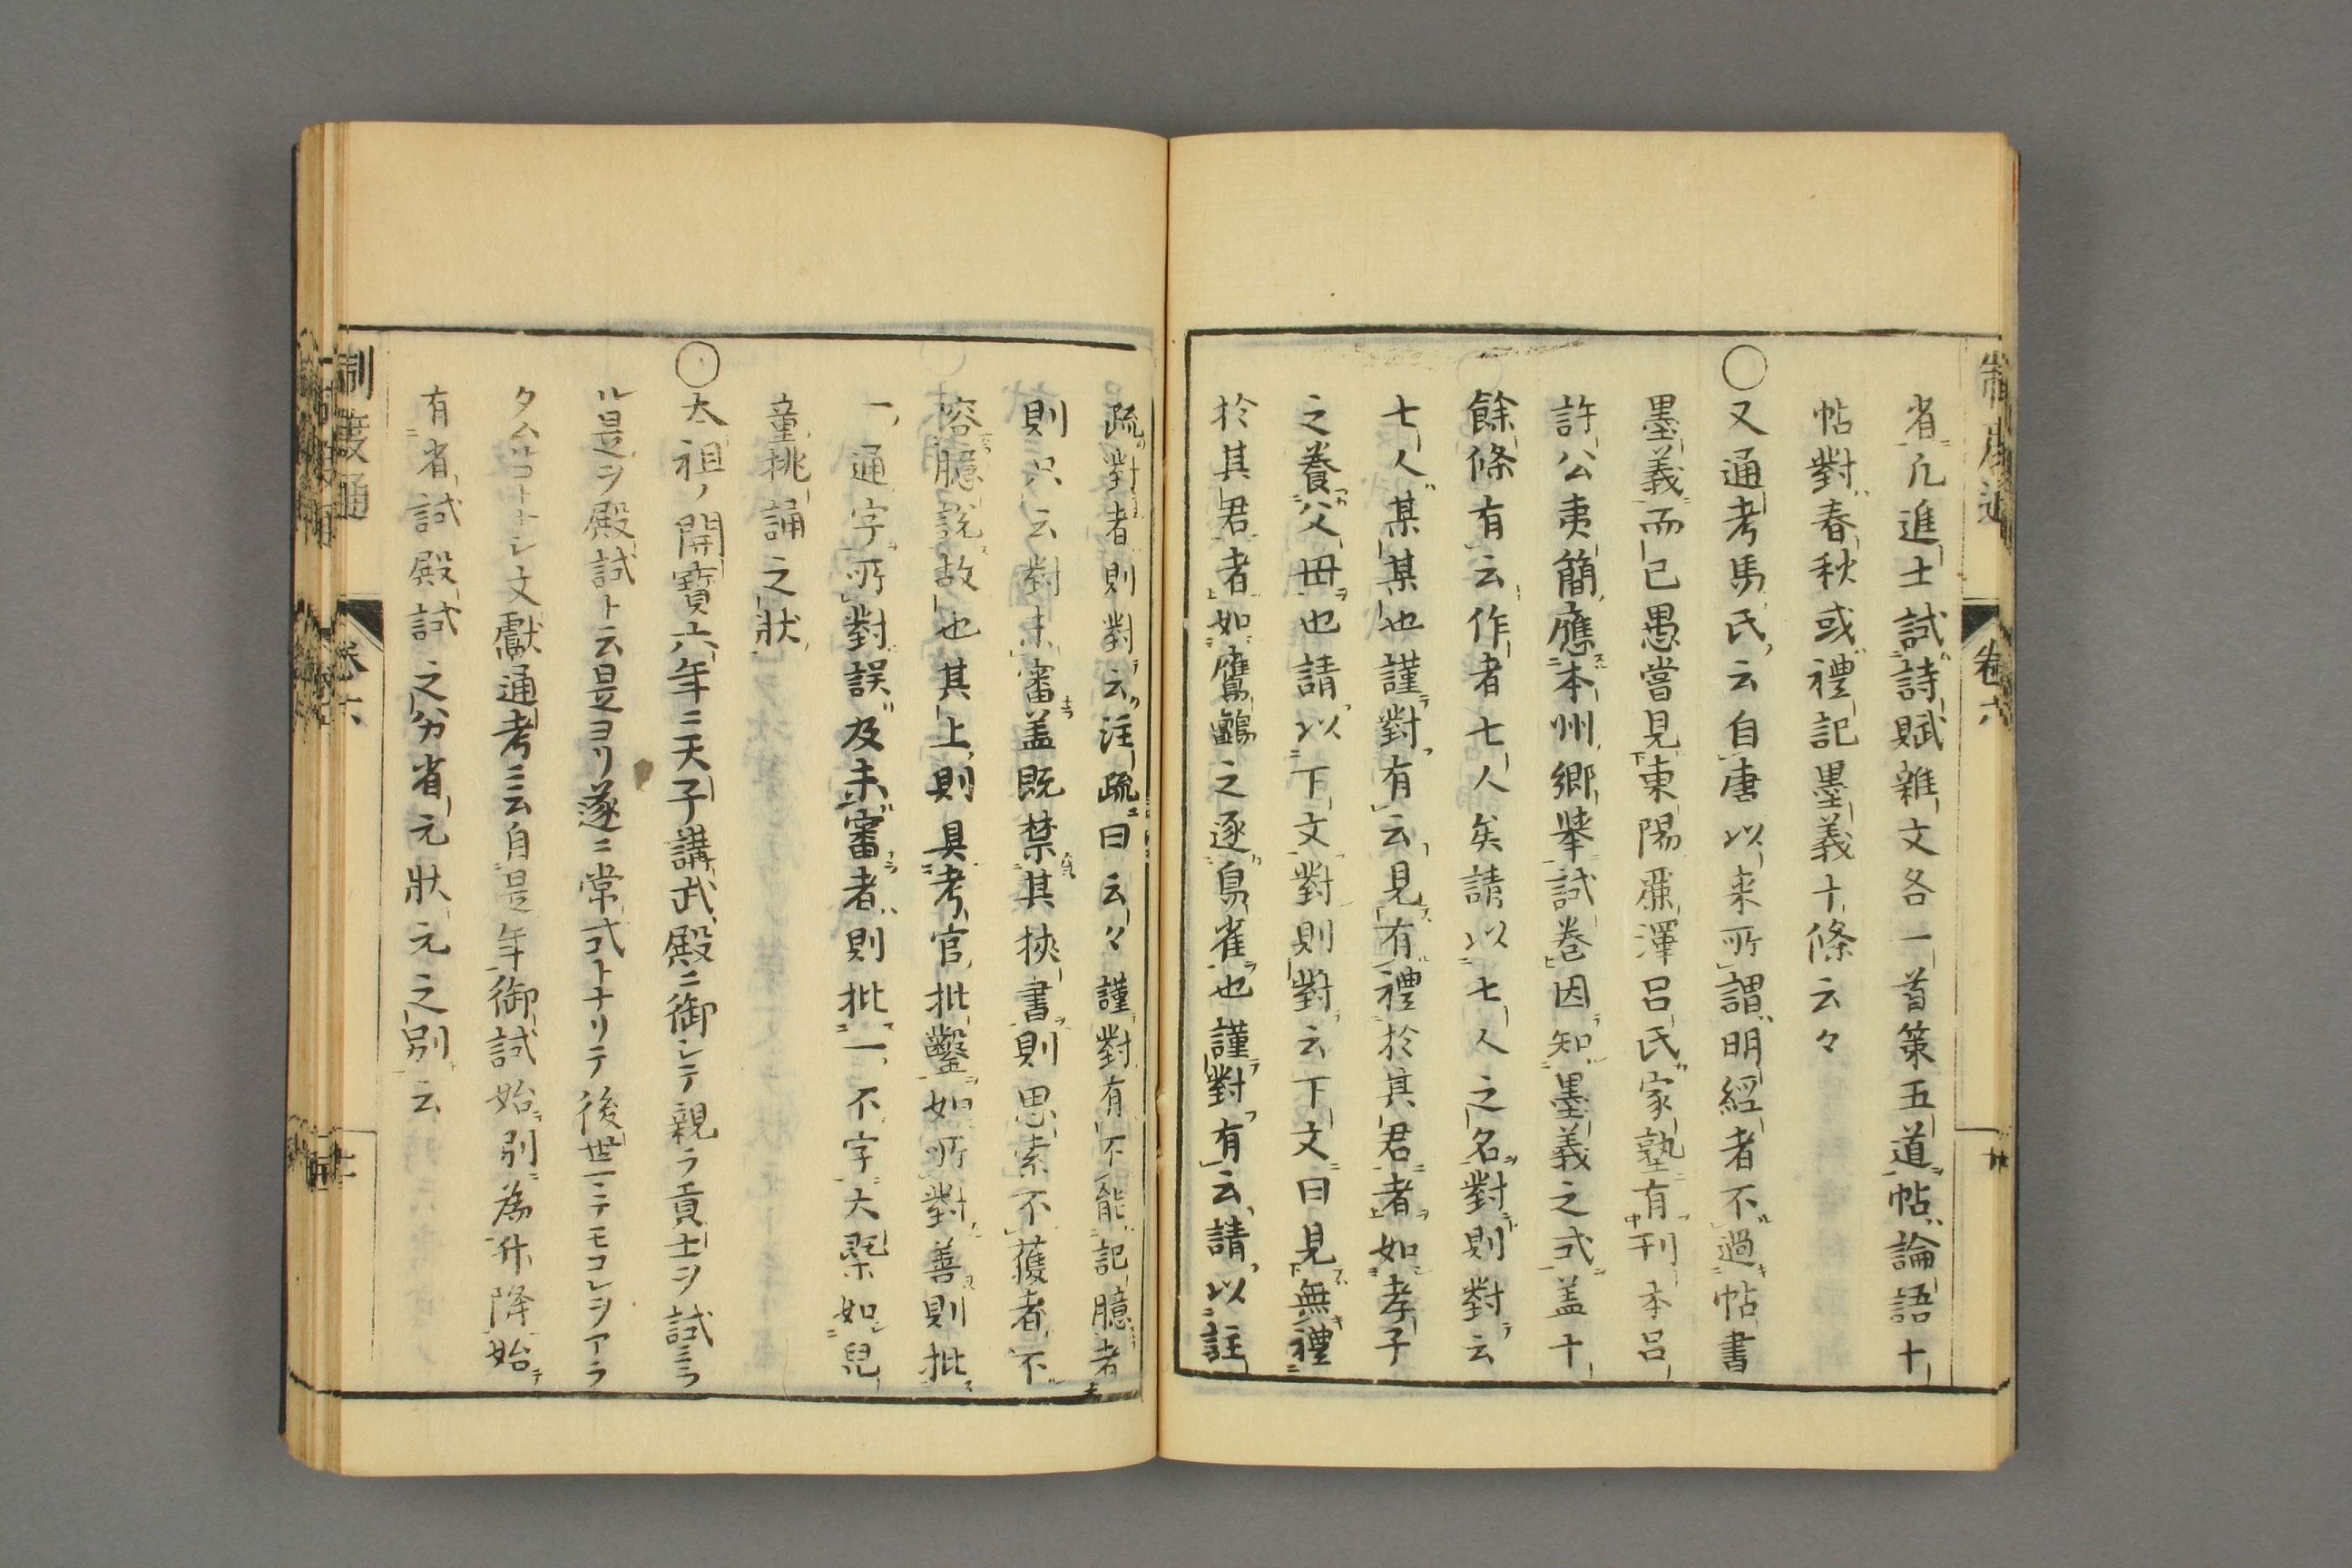 省凡進士試詩賦雜文各一首策五道帖論語十
帖對春秋或禮記墨義十條云々
〇又通考馬氏云自唐以来所謂明經者不過帖書
墨義而已愚嘗見東陽麗澤呂氏家塾有刊本呂
許公夷簡應本州郷舉試卷因知墨義之式盖十
餘條有云作者七人矣請以七人之名對則對云
七人某某也謹對有云見有禮於其君者如孝子
之養父母也請以下文對則對云下文曰見無禮
於其君者如鷹鸇之逐鳥雀也謹對有云請以註
疏對者則對云注疏曰云々謹對有不能記臆者
則只云對未審盖既禁其挾書則思索不獲者不
容臆説故也其上則具考官批鑿如所對善則批
一通字所對誤及未審者則批一不字大槩如兒
童挑誦之狀
〇太祖ノ開寶六年ニ天子講武殿ニ御シテ親ラ貢士ヲ試ミラ
ル是ヲ殿試ト云是ヨリ遂ニ常式トナリテ後世ニテモコレヲアラ
タムルコトナシ文獻通考ニ云自是年御試始別為升降始
有省試殿試之分省元狀元之別云
制度通 卷六